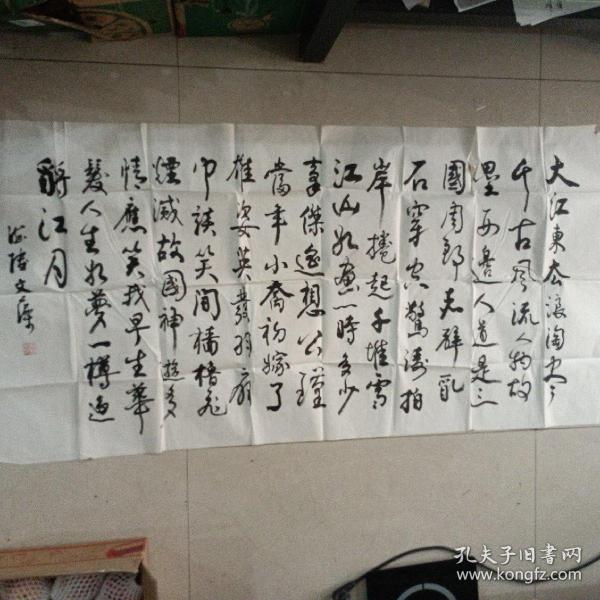 大江東去浪淘尽
千古風流人物故
壘西邊人道是三
國周郎赤壁乱
石穿空驚濤拍
岸捲起千堆雪
江山如畫一時多少
豪傑遙想公瑾
當年小喬初嫁了
雄姿英發羽扇
巾談笑間檣櫓飛
煙滅故國神遊多
情應笑我早生華
髮人生如夢一樽還
酹江月
海陵文
孔夫子旧书网
www.kongfz.com